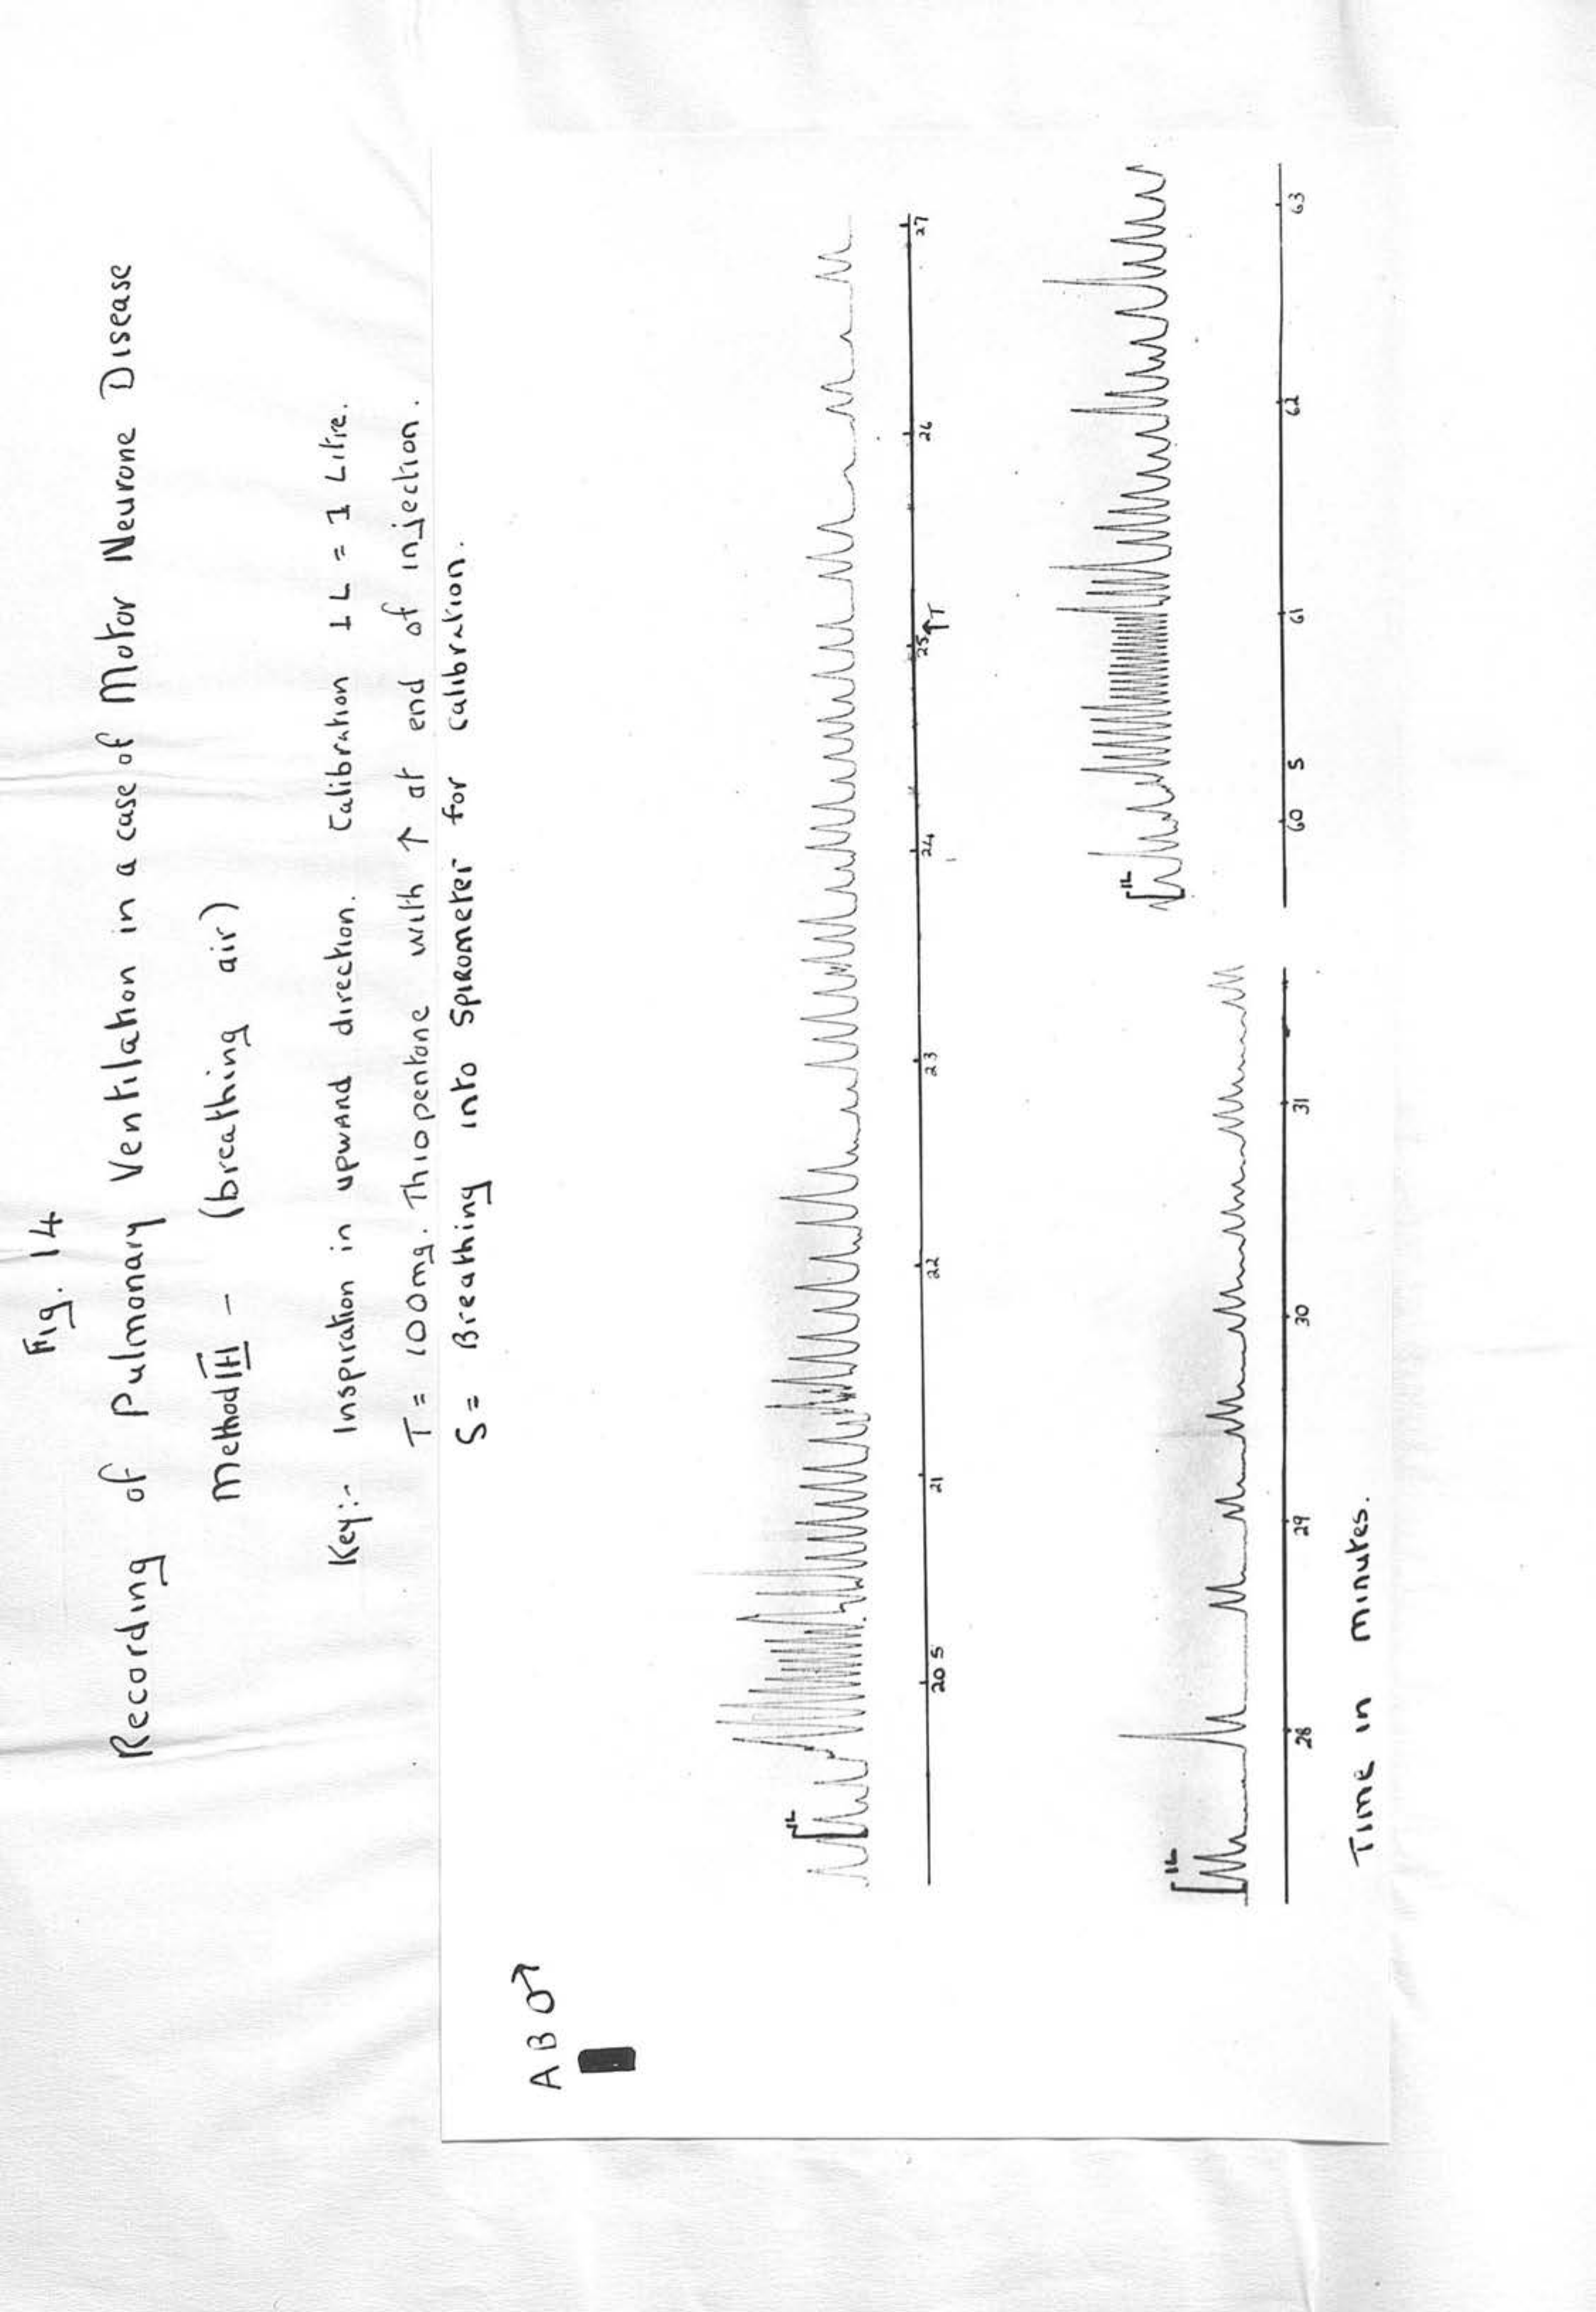 Fig. 14
Recording of Pulmonary Ventilation in a case of Motor Neurone Disease
Method III – (breathing air)
Key:- Inspiration in upward direction. Calibration 1L = 1 Litre.
T = 100mg. Thiopentone with ↑ at end of injection.
S = Breathing into Spirometer for calibration.
AB ♂
1L
20 S 21 22 23 24 25 ↑T 26 27
1L 1L
28 29 30 31 60 S 61 62 63
Time in minutes.